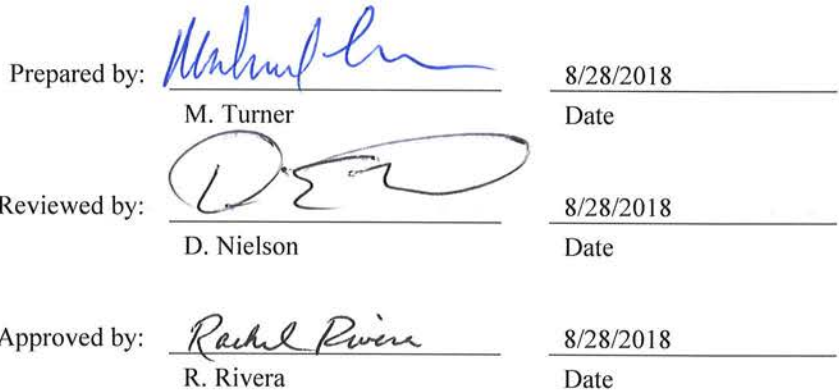 Prepared by: 8/28/2018
M. Turner Date
Reviewed by: 8/28/2018
D. Nielson Date
Approved by: Rachel Rivera 8/28/2018
R. Rivera Date